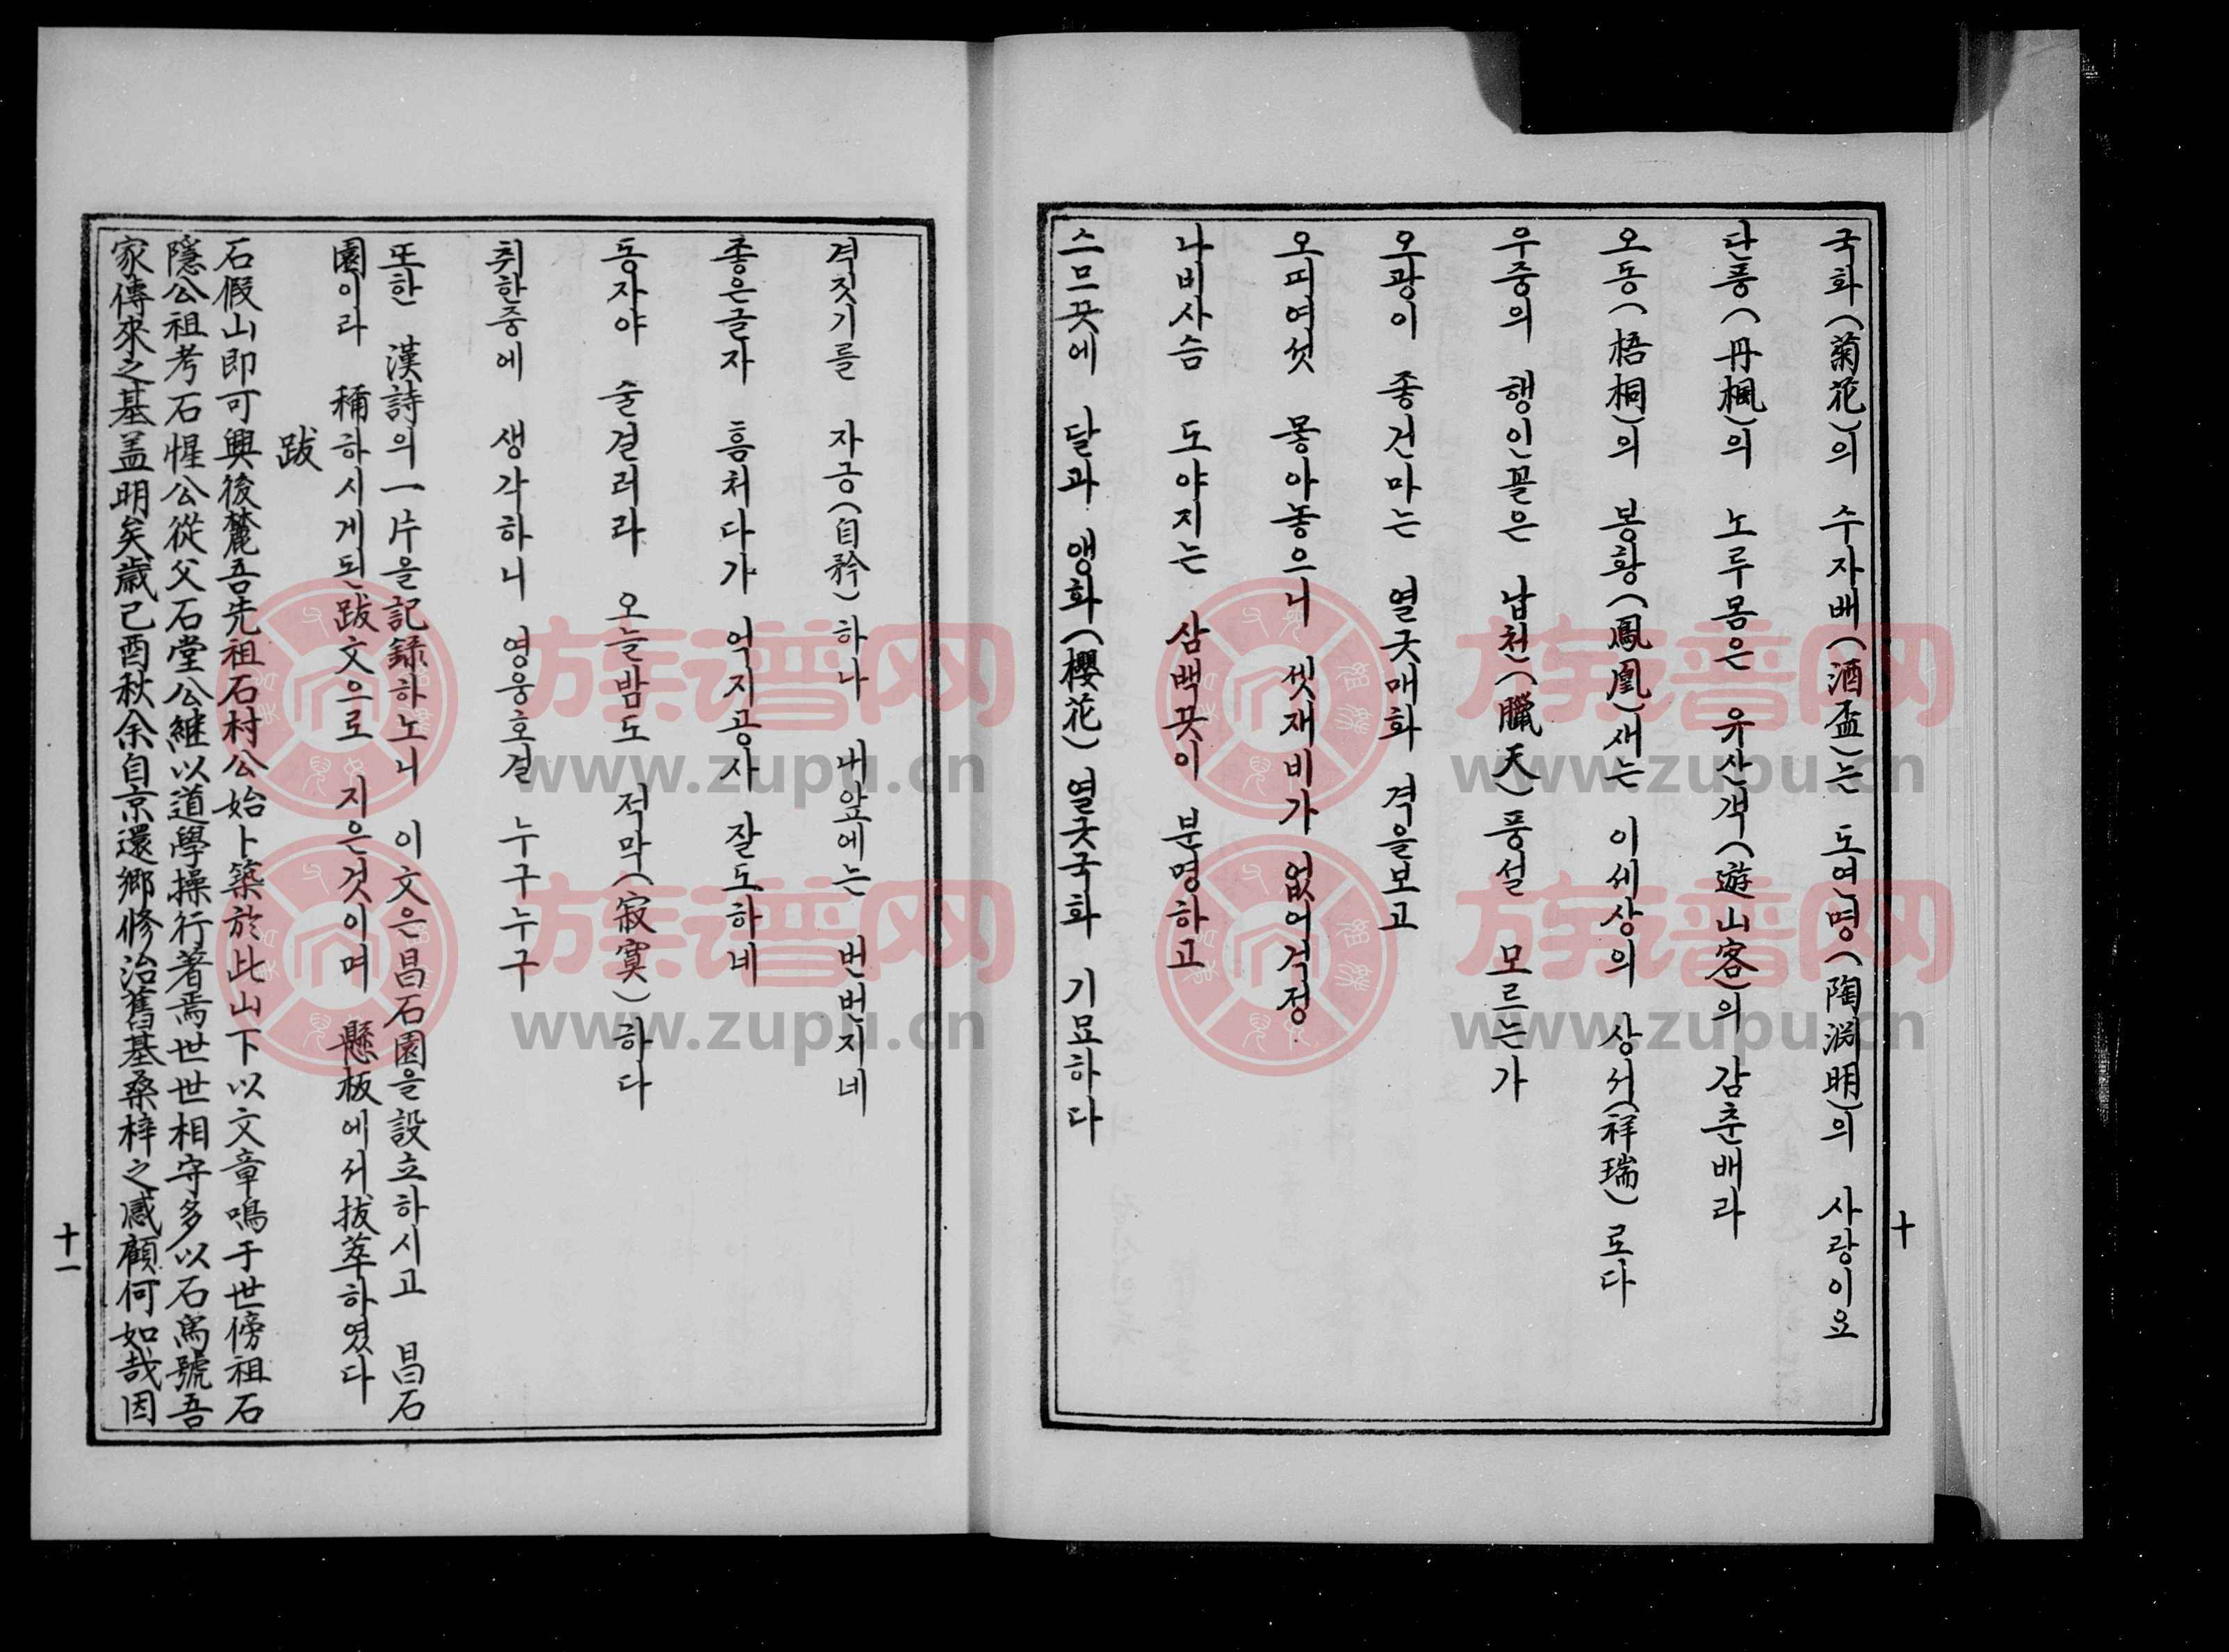 국화(菊花)의 수자배(酒盃)는 도연명(陶淵明)의 사랑이요
단풍(丹楓)의 노루몸은 유산객(遊山客)의 감춘배라
오동(梧桐)의 봉황(鳳凰)새는 이세상의 상서(祥瑞)로다
우중의 행인꼴은 납천(臘天)풍설 모르는가
오광이 좋건마는 열굿매화 격을보고
오피여섯 몽아놓으니 셋재비가 없어걱정
나비사슴 도야지는 삼백끗이 분명하고
스므끗에 달과 앵화(櫻花) 열굿국화 기묘하다
十
격짓기를 자긍(自矜)하나 내앞에는 번번지네
좋은글자 흠처다가 억지공사 잘도하네
동자야 술걸러라 오늘밤도 적막(寂寞)하다
취한중에 생각하니 영웅호걸 누구누구
또한 漢詩의 一片을 記錄하노니 이文은 昌石園을 設立하시고 昌石
園이라 稱하시게된 跋文으로 지은것이며 懸板에서 拔萃하였다
跋
石假山即可興後麓吾先祖石村公始卜築於此山下以文章鳴于世傍祖石
隱公祖考石惺公從父石堂公継以道學操行著焉世世相守多以石爲號吾
家傳來之基盖明矣歲己酉秋余自京還鄉修治舊基桑梓之感顧何如哉因
十一
族谱网
www.zupu.cn
族谱网
www.zupu.cn
族谱网
www.zupu.cn
族谱网
www.zupu.cn